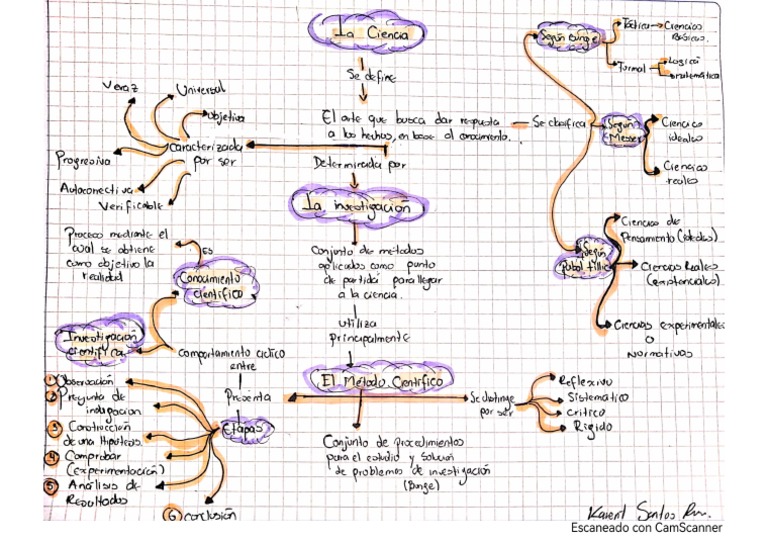 La Ciencia
Se define
El arte que busca dar respuesta
a los hechos, en base al conocimiento.
Se clasifica
Según Bunge
Fáctica
Ciencias
Básicas.
Formal
Lógica
matemática
Según
Messer
Ciencias
ideales
Ciencias
reales
Según
Ciencias de
Pensamiento (ideales)
Ciencias Reales
(existenciales)
Ciencias experimentales
o
Normativas
Caracterizada
por ser
Veraz
Universal
Objetiva
Progresiva
Autocorrectiva
Verificable
Determinada por
La investigación
Conjunto de métodos
aplicados como punto
de partida para llegar
a la ciencia.
utiliza
principalmente
El Método Científico
Conjunto de procedimientos
para el estudio y solución
de problemas de investigación
(Bunge)
Se distinge
por ser
Reflexivo
Sistemático
Critico
Rigido
Presenta
Comportamiento ciclico
entre
Conocimiento
Cientifico
Es
Proceso mediante el
cual se obtiene
como objetivo la
realidad
Investigación
cientifica
Etapas
1 Observación
2 Pregunta de
indagacion
3 Construcción
de una Hipótesis
4 Comprobar
(experimentación)
5 Análisis de
Resultados
6 Conclusión
Santos
Escaneado con CamScanner